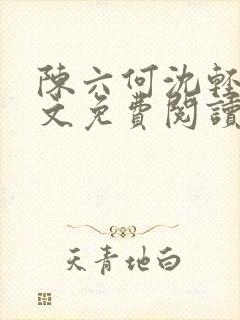 陳六何沈輕
文免費閱讀
天青地白